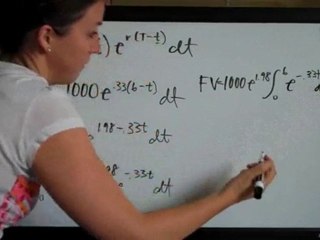 ) e^r(T-t) dt
1000 e^.33(6-t) dt
FV=1000e^1.98 ∫_0^6 e^-.33t
1.98-.33t dt
-.33t dt